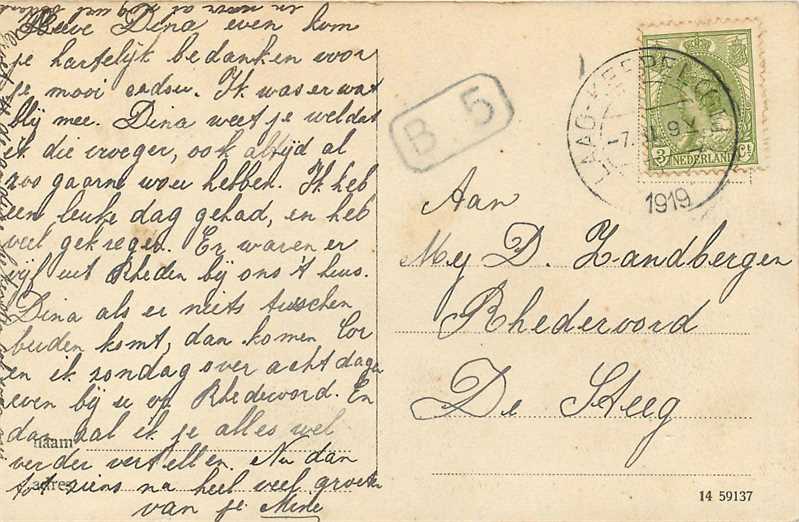 Lieve Dina even kom
je hartelijk bedanken voor
je mooi cadeu. Ik was er wat
blij mee. Dina weet je wel dat
ik die vroeger, ook altijd al
zoo gaarne wou hebben. Ik heb
een leuke dag gehad, en heb
veel gekregen. Er waren er
vijf uit Rheden bij ons 't huis.
Dina als er niets tusschen
beiden komt, dan komen Cor
en ik zondag over acht dagen
even bij u op Rhederoord. En
dan zal ik je alles wel
verder vertellen. Nu dan
tot ziens na heel veel groeten
van je Mine
naam
adres
B 5
LAAG-KEPPEL
-7. 9
1919
3 Ct
NEDERLAND
Aan
Mej D. Zandbergen
Rhederoord
De Steeg
14 59137